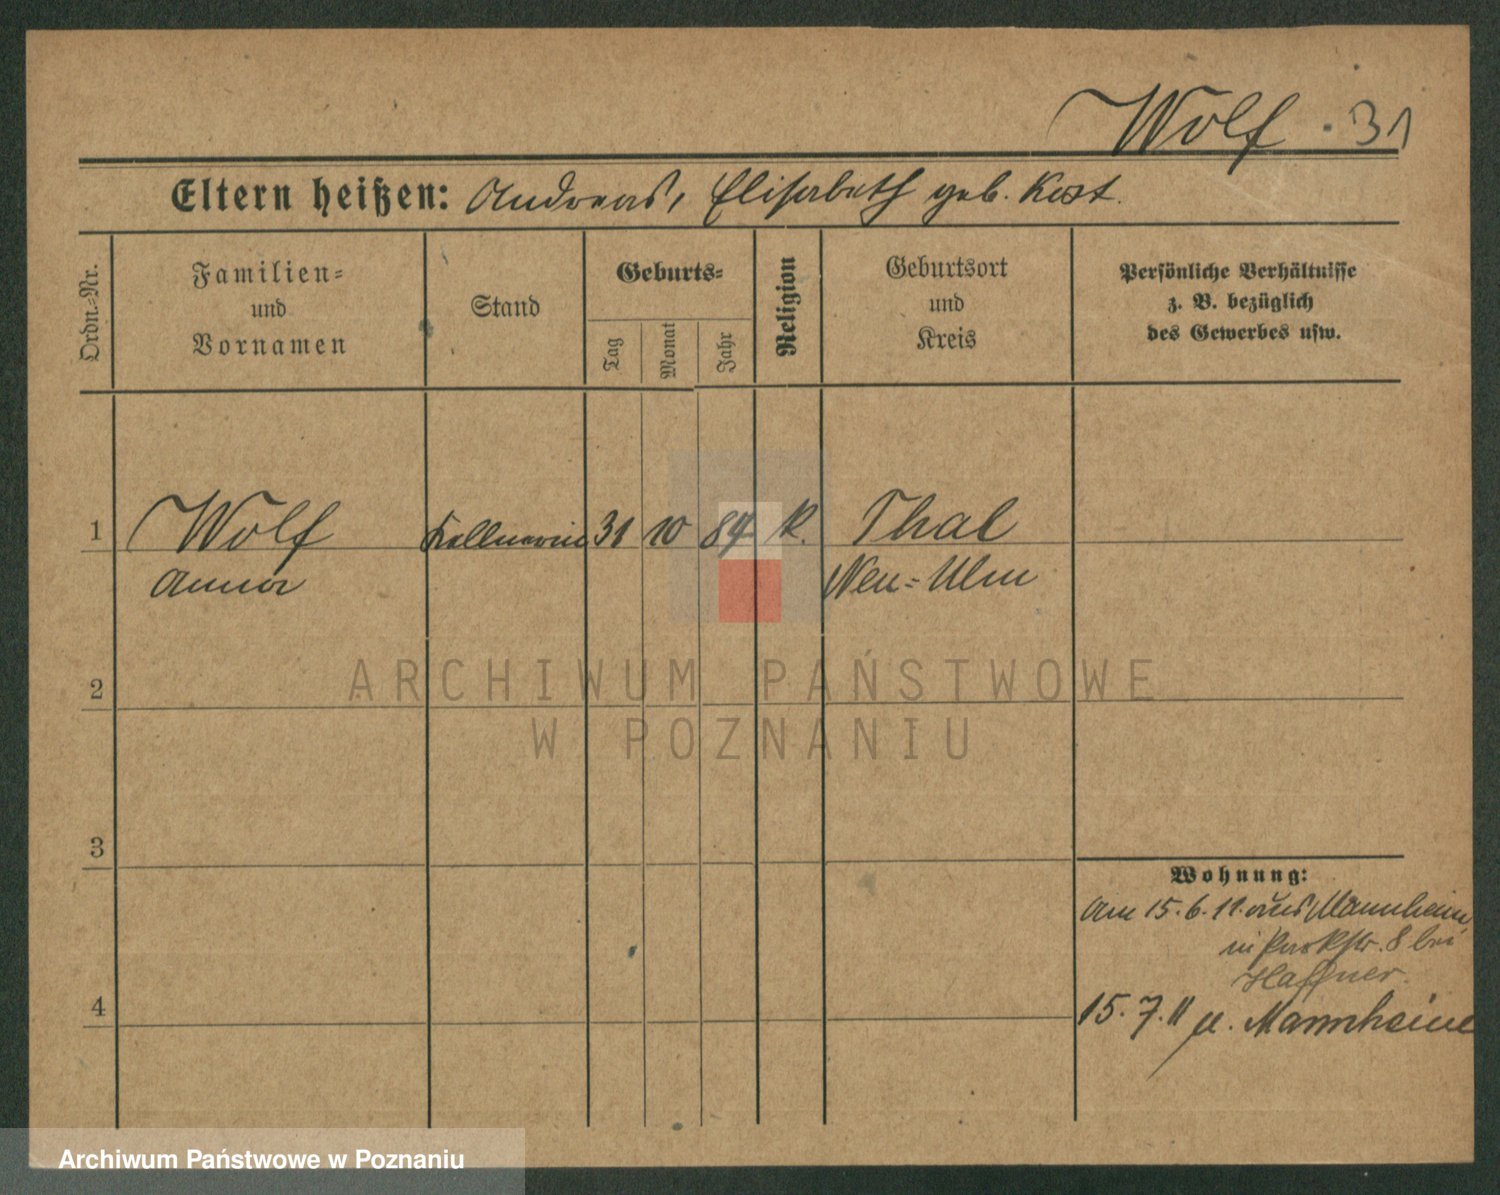 Wolf. 31
Eltern heißen: Andreas, Elisabeth geb. Kost.
Ordn.-Nr.
Familien-
und
Vornamen
Stand
Geburts-
Tag
Monat
Jahr
Religion
Geburtsort
und
Kreis
Persönliche Verhältnisse
z. B. bezüglich
des Gewerbes usw.
1 Wolf Kellnerin 31 10 84 k. Thal
Anna Neu-Ulm
ARCHIWUM PAŃSTWOWE
W POZNANIU
2
3
4
Wohnung:
Am 15.6.11. aus Mannheim
in Parkstr. 8 bei
Haffner.
15.7.11 n. Mannheim
Archiwum Państwowe w Poznaniu